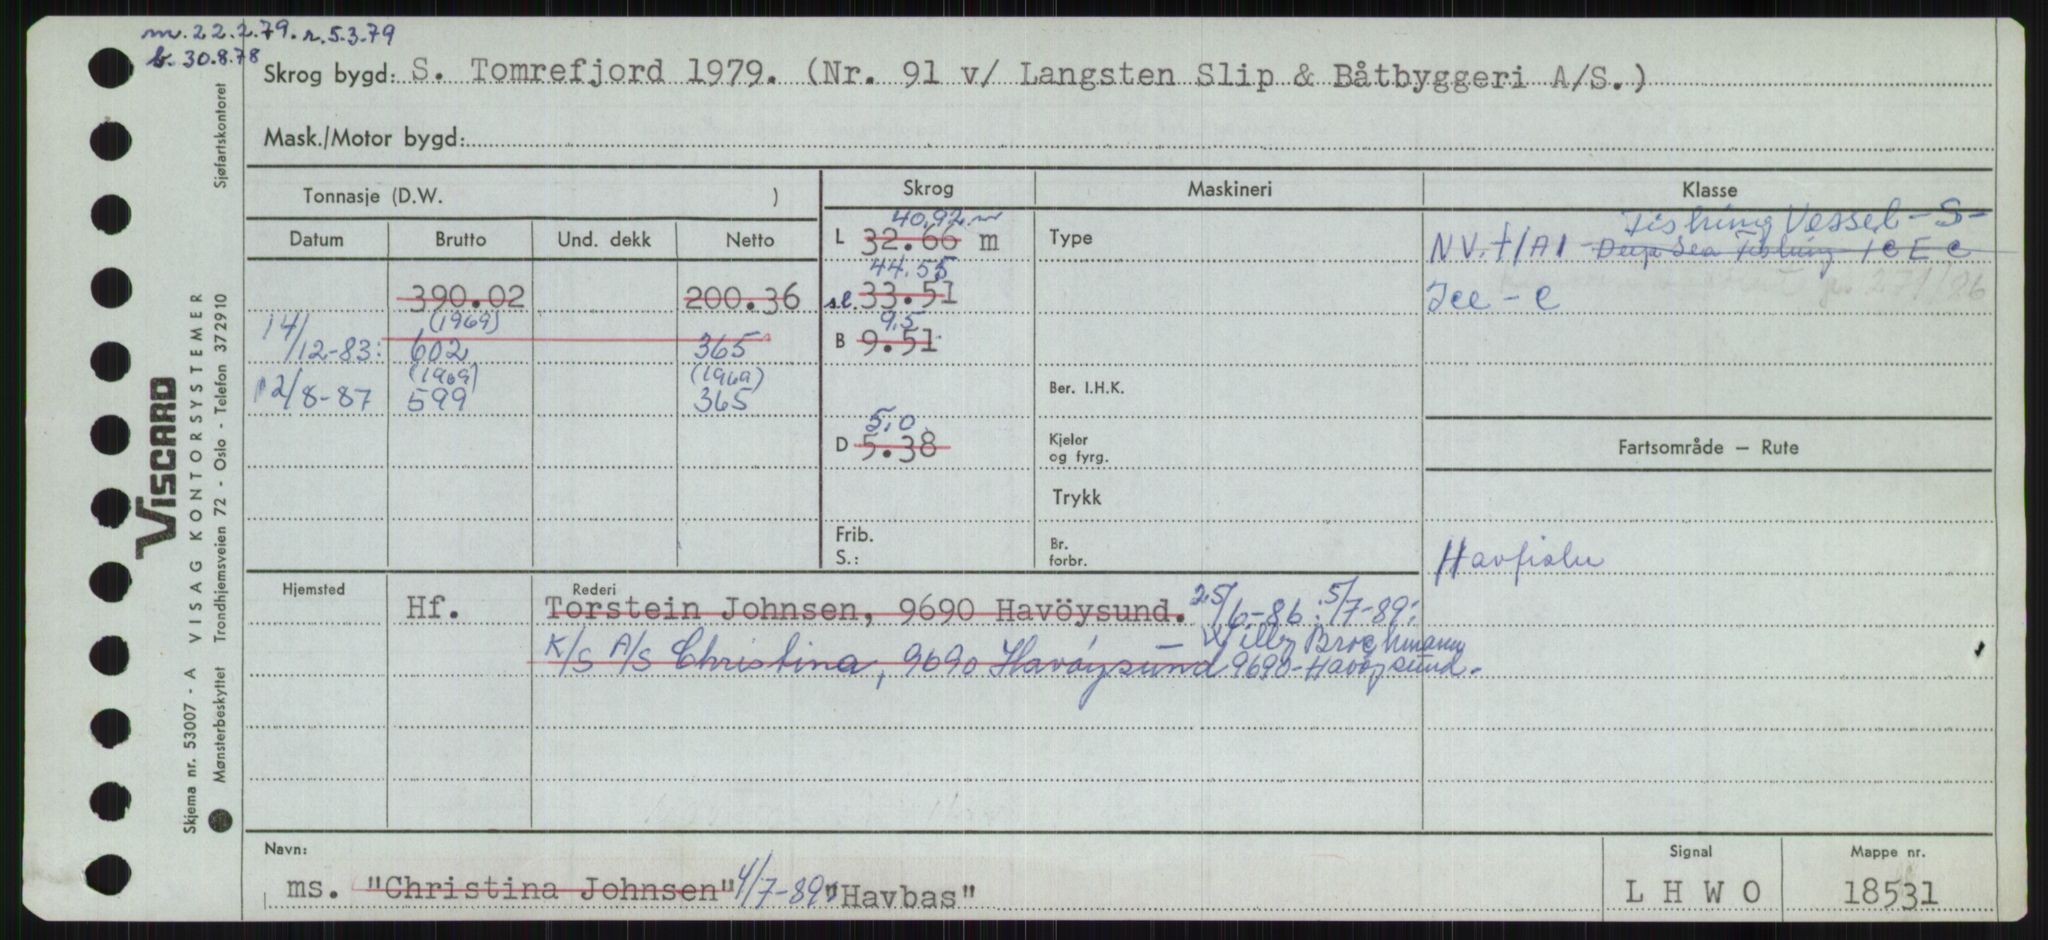 m. 22.2.79. r. 5.3.79
b. 30.8.78
Skrog bygd: S. Tomrefjord 1979. (Nr. 91 v/ Langsten Slip & Båtbyggeri A/S.)
Mask./Motor bygd:
Tonnasje (D.W. )
Skrog
Maskineri
Klasse
Datum
Brutto
Und. dekk
Netto
390.02
200.36
14/12-83:
(1969)
602
365
12/8-87
(1969)
599
(1969)
365
40,92 m
L 32.66 m
44.55
s.l. 33.51
9,5
B 9.51
5,0
D 5.38
Frib.
S.:
Type
Ber. I.H.K.
Kjeler
og fyrg.
Trykk
Br.
forbr.
Fishing Vessel -S-
NV. +1A1 Deep Sea Fishing ICE C
271/26
Ice - C
Fartsområde — Rute
Havfiske
Hjemsted
Rederi
Hf.
Torstein Johnsen, 9690 Havöysund. 25/6-86. 5/7-89:
Willy Brochmann
K/S A/S Christina, 9690 Havöysund 9690-Havöysund.
Navn:
ms. "Christina Johnsen" 4/7-89: "Havbas"
Signal
LHWO
Mappe nr.
18531
Sjøfartskontoret
VISCARD
VISAG KONTORSYSTEMER
Trondhjemsveien 72 - Oslo - Telefon 372910
Skjema nr. 53007 - A
Mønsterbeskyttet